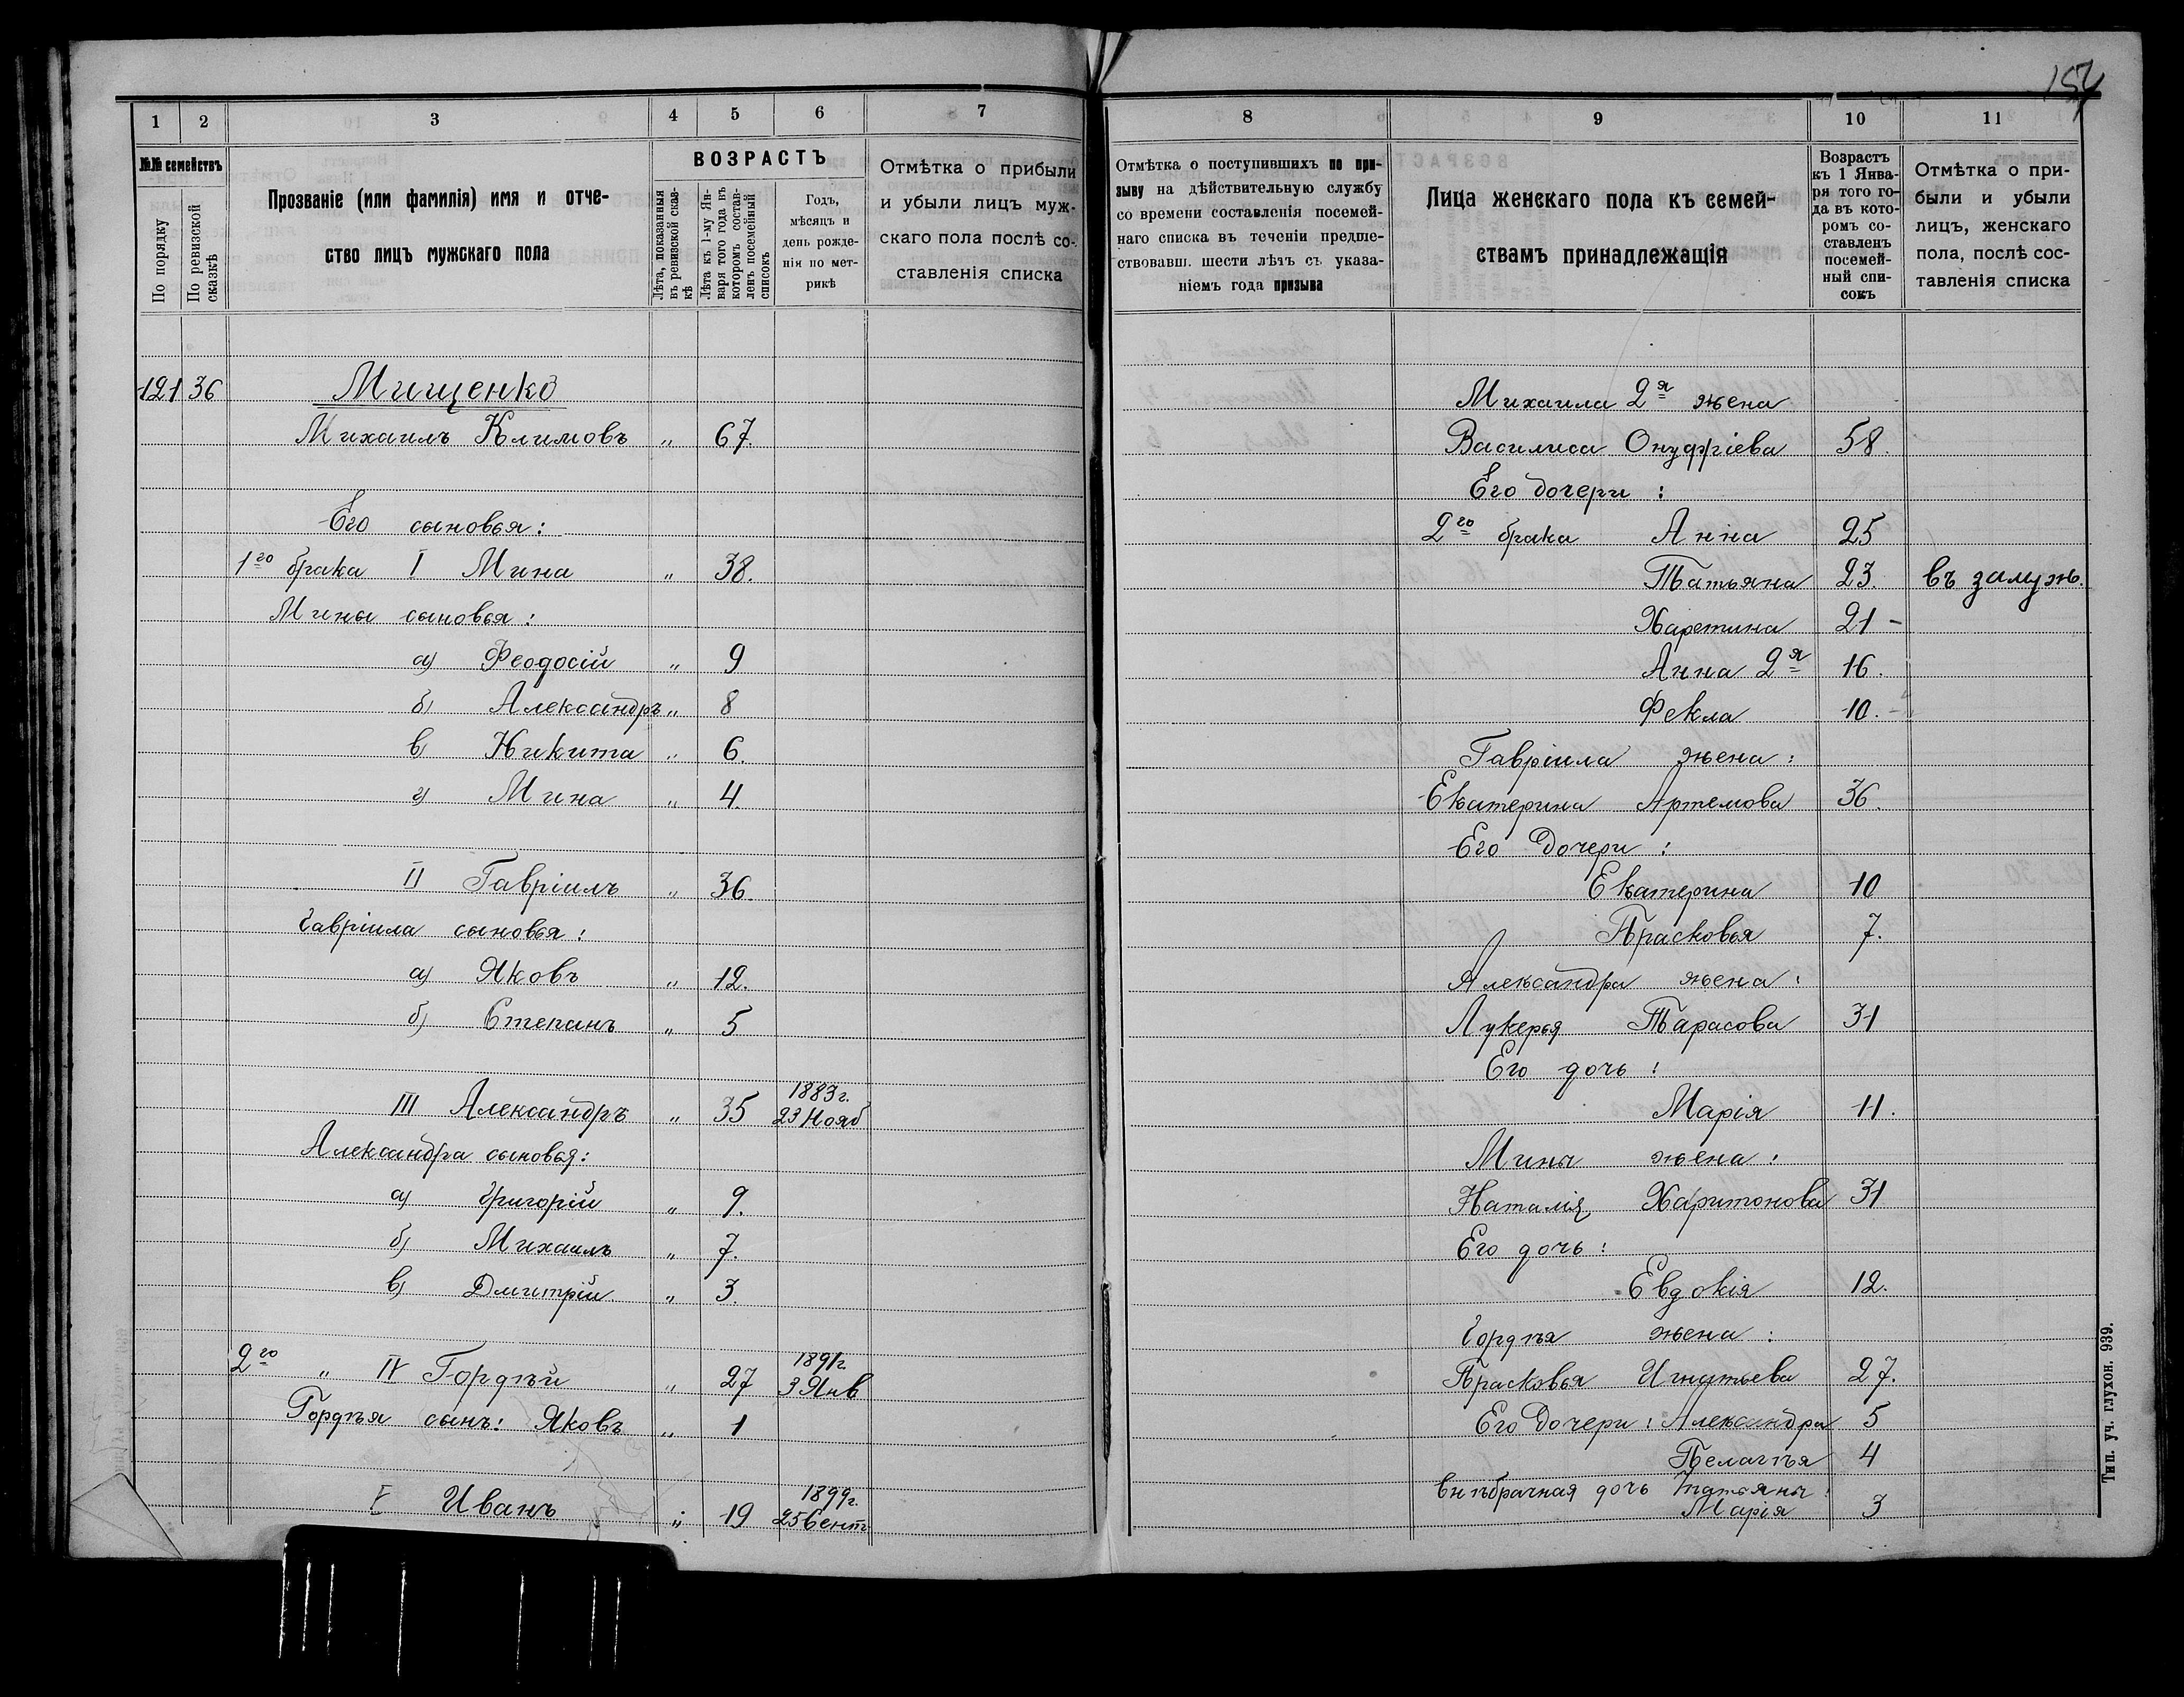 154
1 2 3 4 5 6 7
№№ семействъ
По порядку
По ревизской сказкѣ
Прозваніе (или фамилія) имя и отче-
ство лицъ мужскаго пола
ВОЗРАСТЪ
Лѣта, показанныя въ ревизской сказ-кѣ
Лѣта къ 1-му Ян-варя того года въ которомъ состав-ленъ посемейный списокъ
Годъ,
мѣсяцъ и
день рожде-
нія по мет-
рикѣ
Отмѣтка о прибыли
и убыли лицъ муж-
скаго пола послѣ со-
ставленія списка
121 36 Мищенко
Михаилъ Климовъ „ 67.
Его сыновья:
1го брака I Мина „ 38.
Мины сыновья:
а) Феодосій „ 9
б) Александръ „ 8
в) Никита „ 6.
г) Мина „ 4.
II Гавріилъ „ 36.
Гавріила сыновья:
а) Яковъ „ 12.
б) Степанъ „ 5
III Александръ „ 35 1883г. 23 Нояб
Александра сыновья:
а) Григорій „ 9.
б) Михаилъ „ 7.
в) Дмитрій „ 3.
2го „ IV Гордѣй „ 27 1891г. 3 Янв
Гордѣя сынъ: Яковъ „ 1
V Иванъ „ 19 1899г. 25 Сент
8 9 10 11
Отмѣтка о поступившихъ по при-
зыву на дѣйствительную службу
со времени составленія посемей-
наго списка въ теченіи предше-
ствовавш. шести лѣтъ съ указа-
ніемъ года призыва
Лица женскаго пола къ семей-
ствамъ принадлежащія
Возрастъ
къ 1 Янва-
ря того го-
да въ кото-
ромъ со-
ставленъ
посемей-
ный спи-
сокъ
Отмѣтка о при-
были и убыли
лицъ, женскаго
пола, послѣ сос-
тавленія списка
Михаила 2я жена
Василиса Онуфріева 58.
Его дочери:
2го брака Анна 25
Татьяна 23. въ замуж.
Харетина 21 -
Анна 2я 16.
Фекла 10. -
Гавріила жена:
Екатерина Артемова 36.
Его дочери:
Екатерина 10
Прасковья 7.
Александра жена:
Лукерья Тарасова 31
Его дочь:
Марія 11.
Мины жена:
Наталія Харитонова 31
Его дочь:
Евдокія 12.
Гордѣя жена:
Прасковья Игнатьева 27.
Его дочери: Александра 5
Пелагѣя 4
внѣбрачная дочь Татьяны:
Марія 3
Тип. уч. глухон. 939.